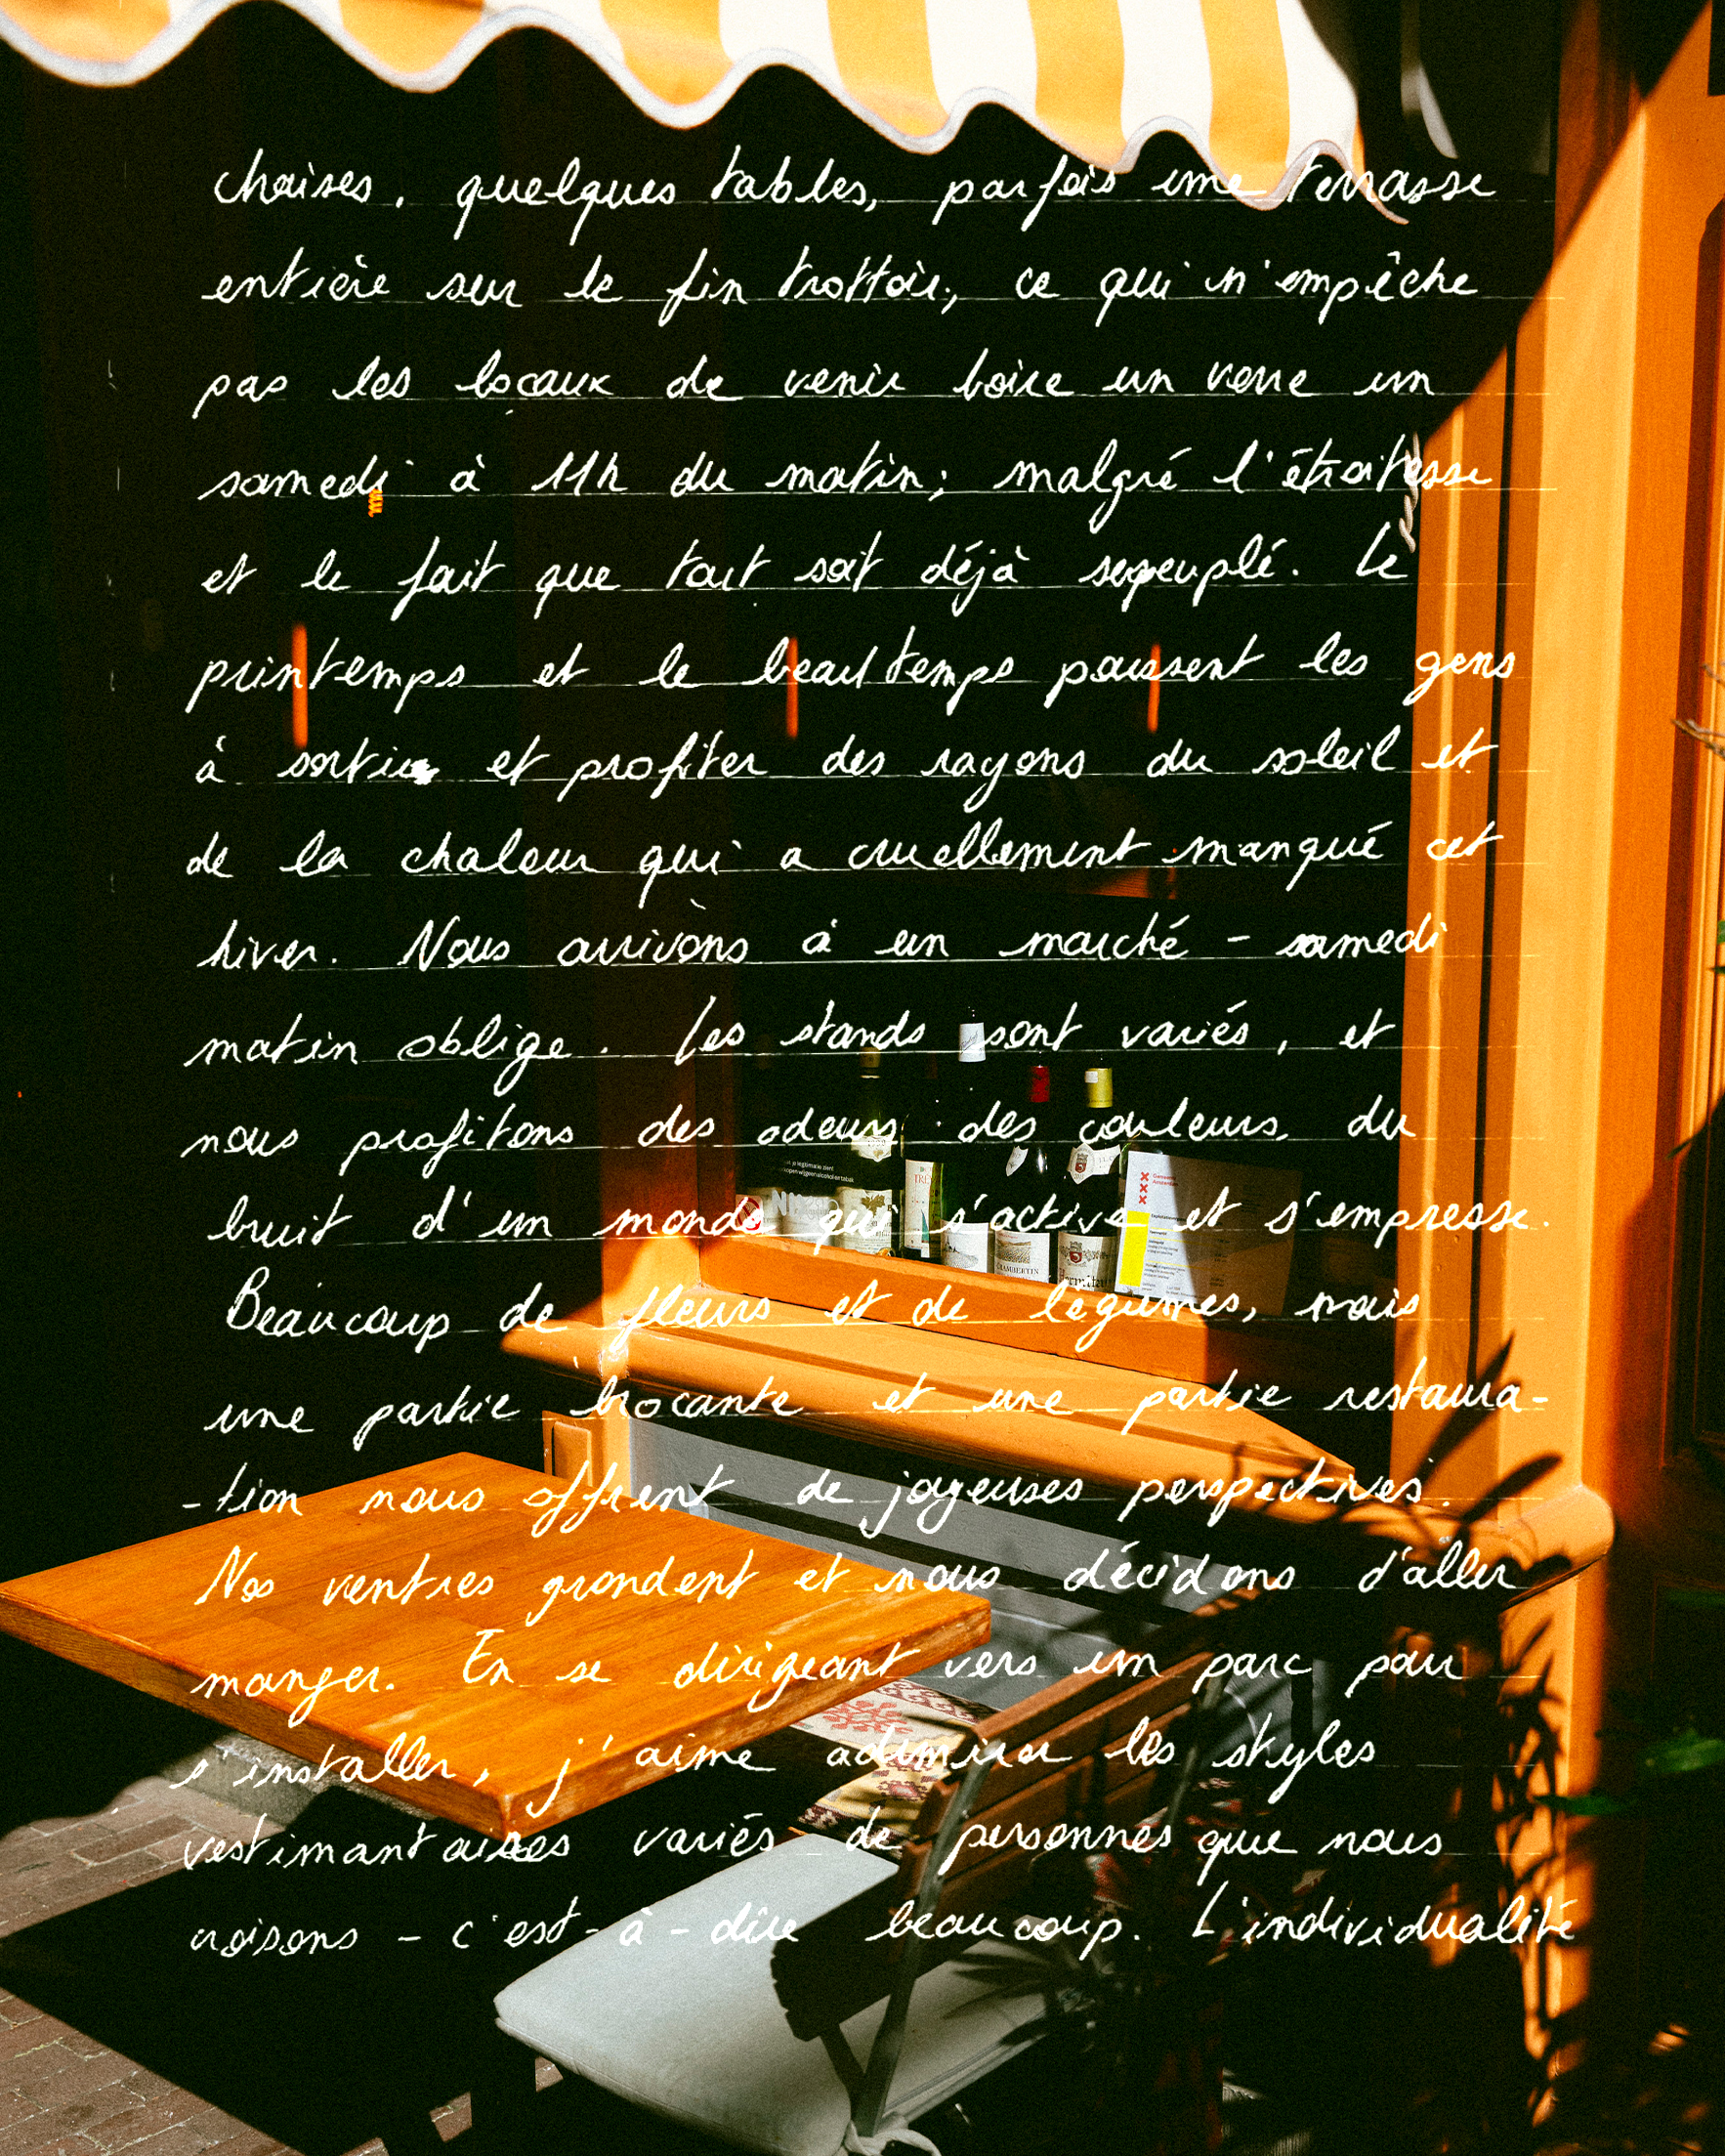 chaises, quelques tables, parfois une terrasse
entière sur le fin trottoir, ce qui n'empêche
pas les locaux de venir boire un verre un
samedi à 11h du matin; malgré l'étroitesse
et le fait que tout soit déjà surpeuplé. Le
printemps et le beau temps poussent les gens
à sortir et profiter des rayons du soleil et
de la chaleur qui a cruellement manqué cet
hiver. Nous arrivons à un marché - samedi
matin oblige. Les stands sont variés, et
nous profitons des odeurs, des couleurs, du
bruit d'un monde qui s'active et s'empresse.
CHAMBERTIN
Beaucoup de fleurs et de légumes, mais
une partie brocante et une partie restaura-
-tion nous offrent de joyeuses perspectives.
Nos ventres grondent et nous décidons d'aller
manger. En se dirigeant vers un parc pour
s'installer, j'aime admirer les styles
vestimantaires variés de personnes que nous
croisons - c'est-à-dire beaucoup. L'individualité